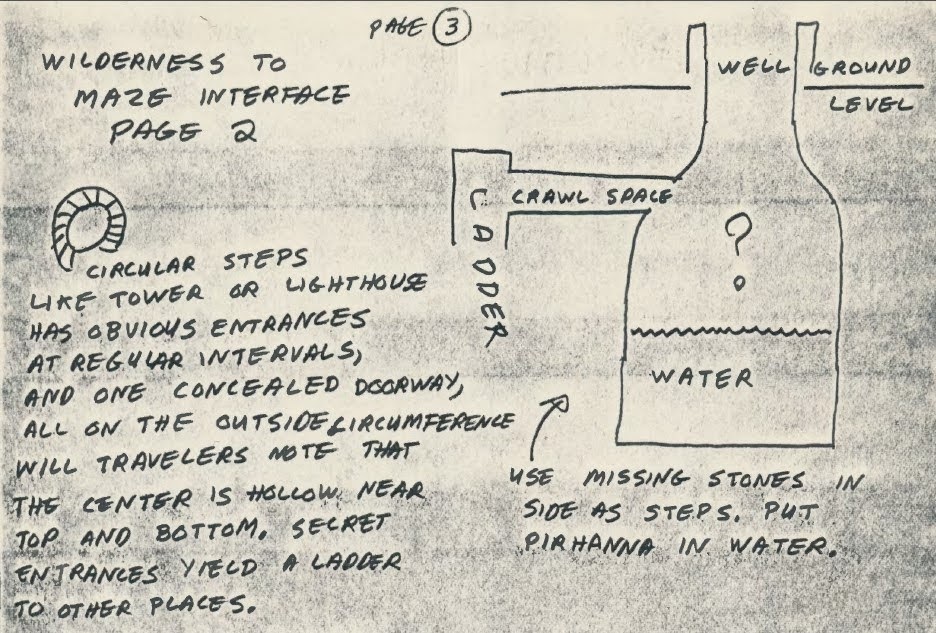 PAGE 3
WILDERNESS TO
MAZE INTERFACE
PAGE 2
WELL
GROUND
LEVEL
CRAWL SPACE
LADDER
?
WATER
CIRCULAR STEPS
LIKE TOWER OR LIGHTHOUSE
HAS OBVIOUS ENTRANCES
AT REGULAR INTERVALS,
AND ONE CONCEALED DOORWAY,
ALL ON THE OUTSIDE CIRCUMFERENCE
WILL TRAVELERS NOTE THAT
THE CENTER IS HOLLOW NEAR
TOP AND BOTTOM. SECRET
ENTRANCES YIELD A LADDER
TO OTHER PLACES.
USE MISSING STONES IN
SIDE AS STEPS. PUT
PIRHANNA IN WATER.